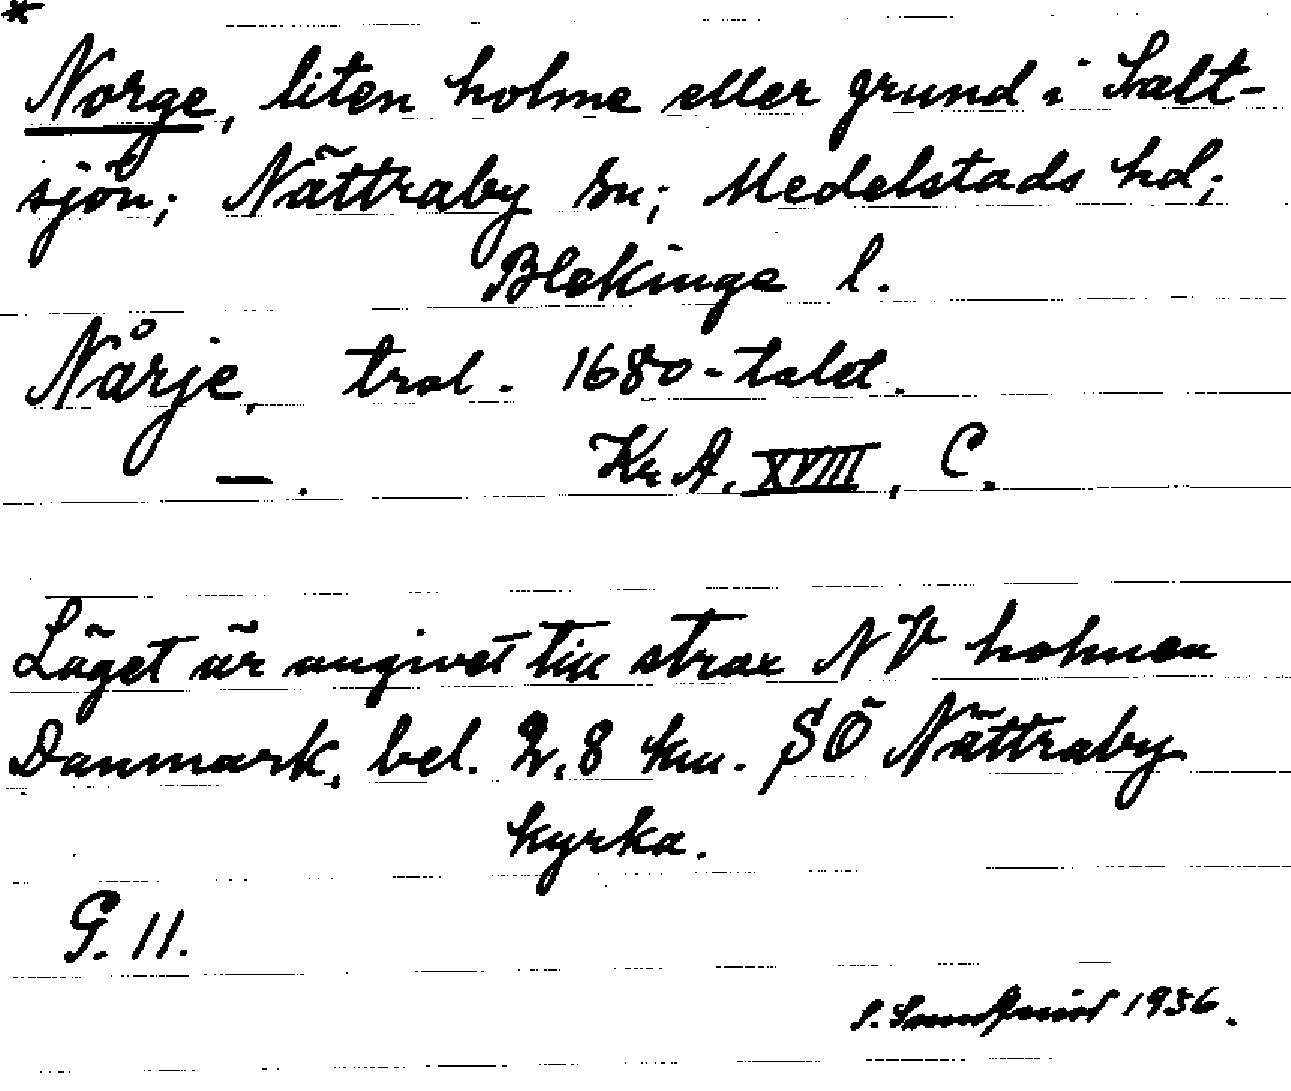 *
Norge, liten holme eller grund i Salt-
sjön; Nättraby sn; Medelstads hd;
Blekinge l.
Nårje, trol. 1680-talet.
—. Kr. A. XVIII, C.
Läget är angivet till strax NV holmen
Danmark, bel. 2,8 km. SÖ Nättraby
kyrka.
G. 11.
1936.